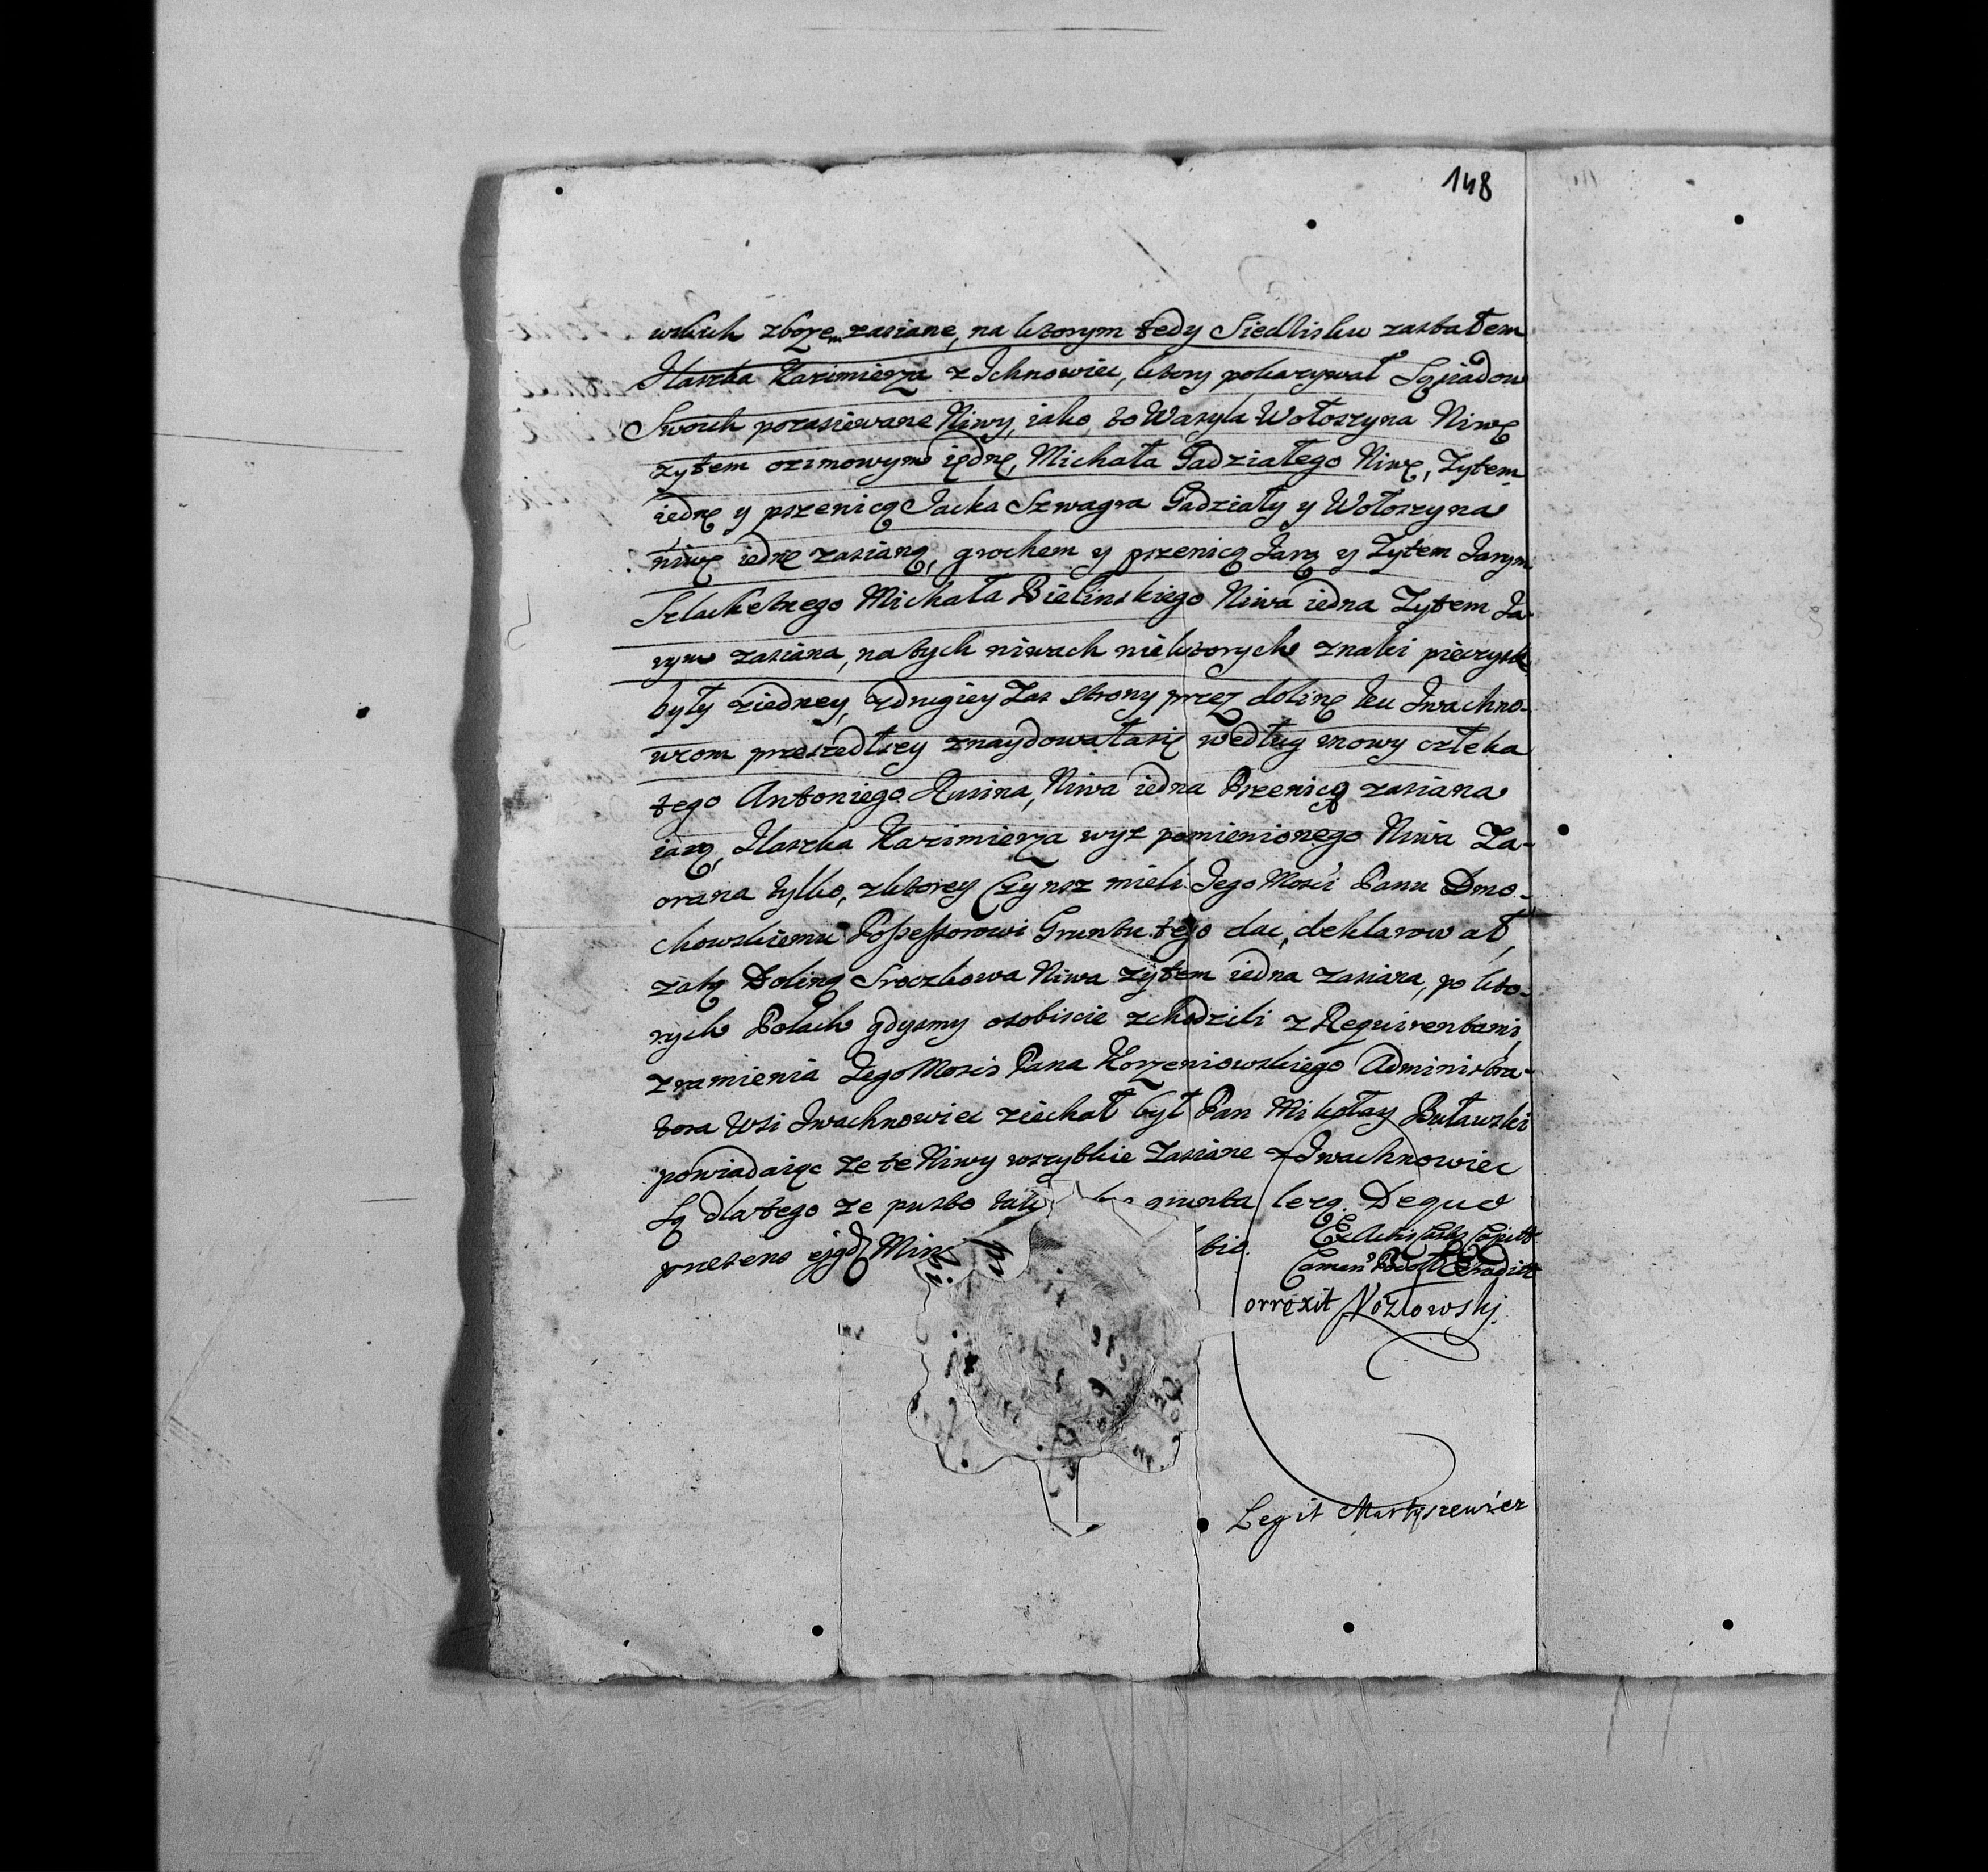 148
wskich zbożem zasiane, na ktorym tedy Siedlisku zastałem
Iłaszka Kazimierza z Ichnowiec, ktory pokazywał Sąsiadow
Swoich pozasiewane Niwy, iako to Wasyla Wołoszyna Niwę
żytem ozimowym iędnę, Michała Gadziałego Niwę, Zytem
iednę y pszenicą Jacka Szwagra Gadziały y Wołoszyna
niwę iednę zasianą, grochem y pszenicą Jarą y Zytem Jarym
Szlachetnego Michała Bielinskiego Niwa iedna Zytem Ja-
rym zasiana, na tych niwach niektorych znaki pieczysk
były ziedney, z drugiey Zas strony przez dolinę ku Iwachno-
wcom przeszedłszy znaydowałasię według mowy człeka
tego Antoniego Rusina, Niwa iedna Pszenicą zasiana
iarą, Iłaszka Kazimierza wyż pomienionego Niwa Za-
orana tylko, zktorey Czynsz mieli Jego Mości Panu Dmo-
chowskiemu Possessorowi Gruntu tego dac, deklarował,
zatą Doliną Sroczkowa Niwa żytem iedna zasiana, po kto-
rych Polach gdysmy osobiscie zchodzili z Requirentami,
zramienia Jego Mosci Pana Korzeniowskiego Administra-
tora Wsi Iwachnowiec ziechał był Pan Mikołay Buławski
powiadaiąc ze te Niwy wszytkie Zasiane z Iwachnowiec
Są dlatego ze pusto grunta lezą. Dequo
presens ejgd Min
Ex Actis Castr Capit
Camen Podol Extradit
orrexit Kozłowskj.
Legit Martyszewicz